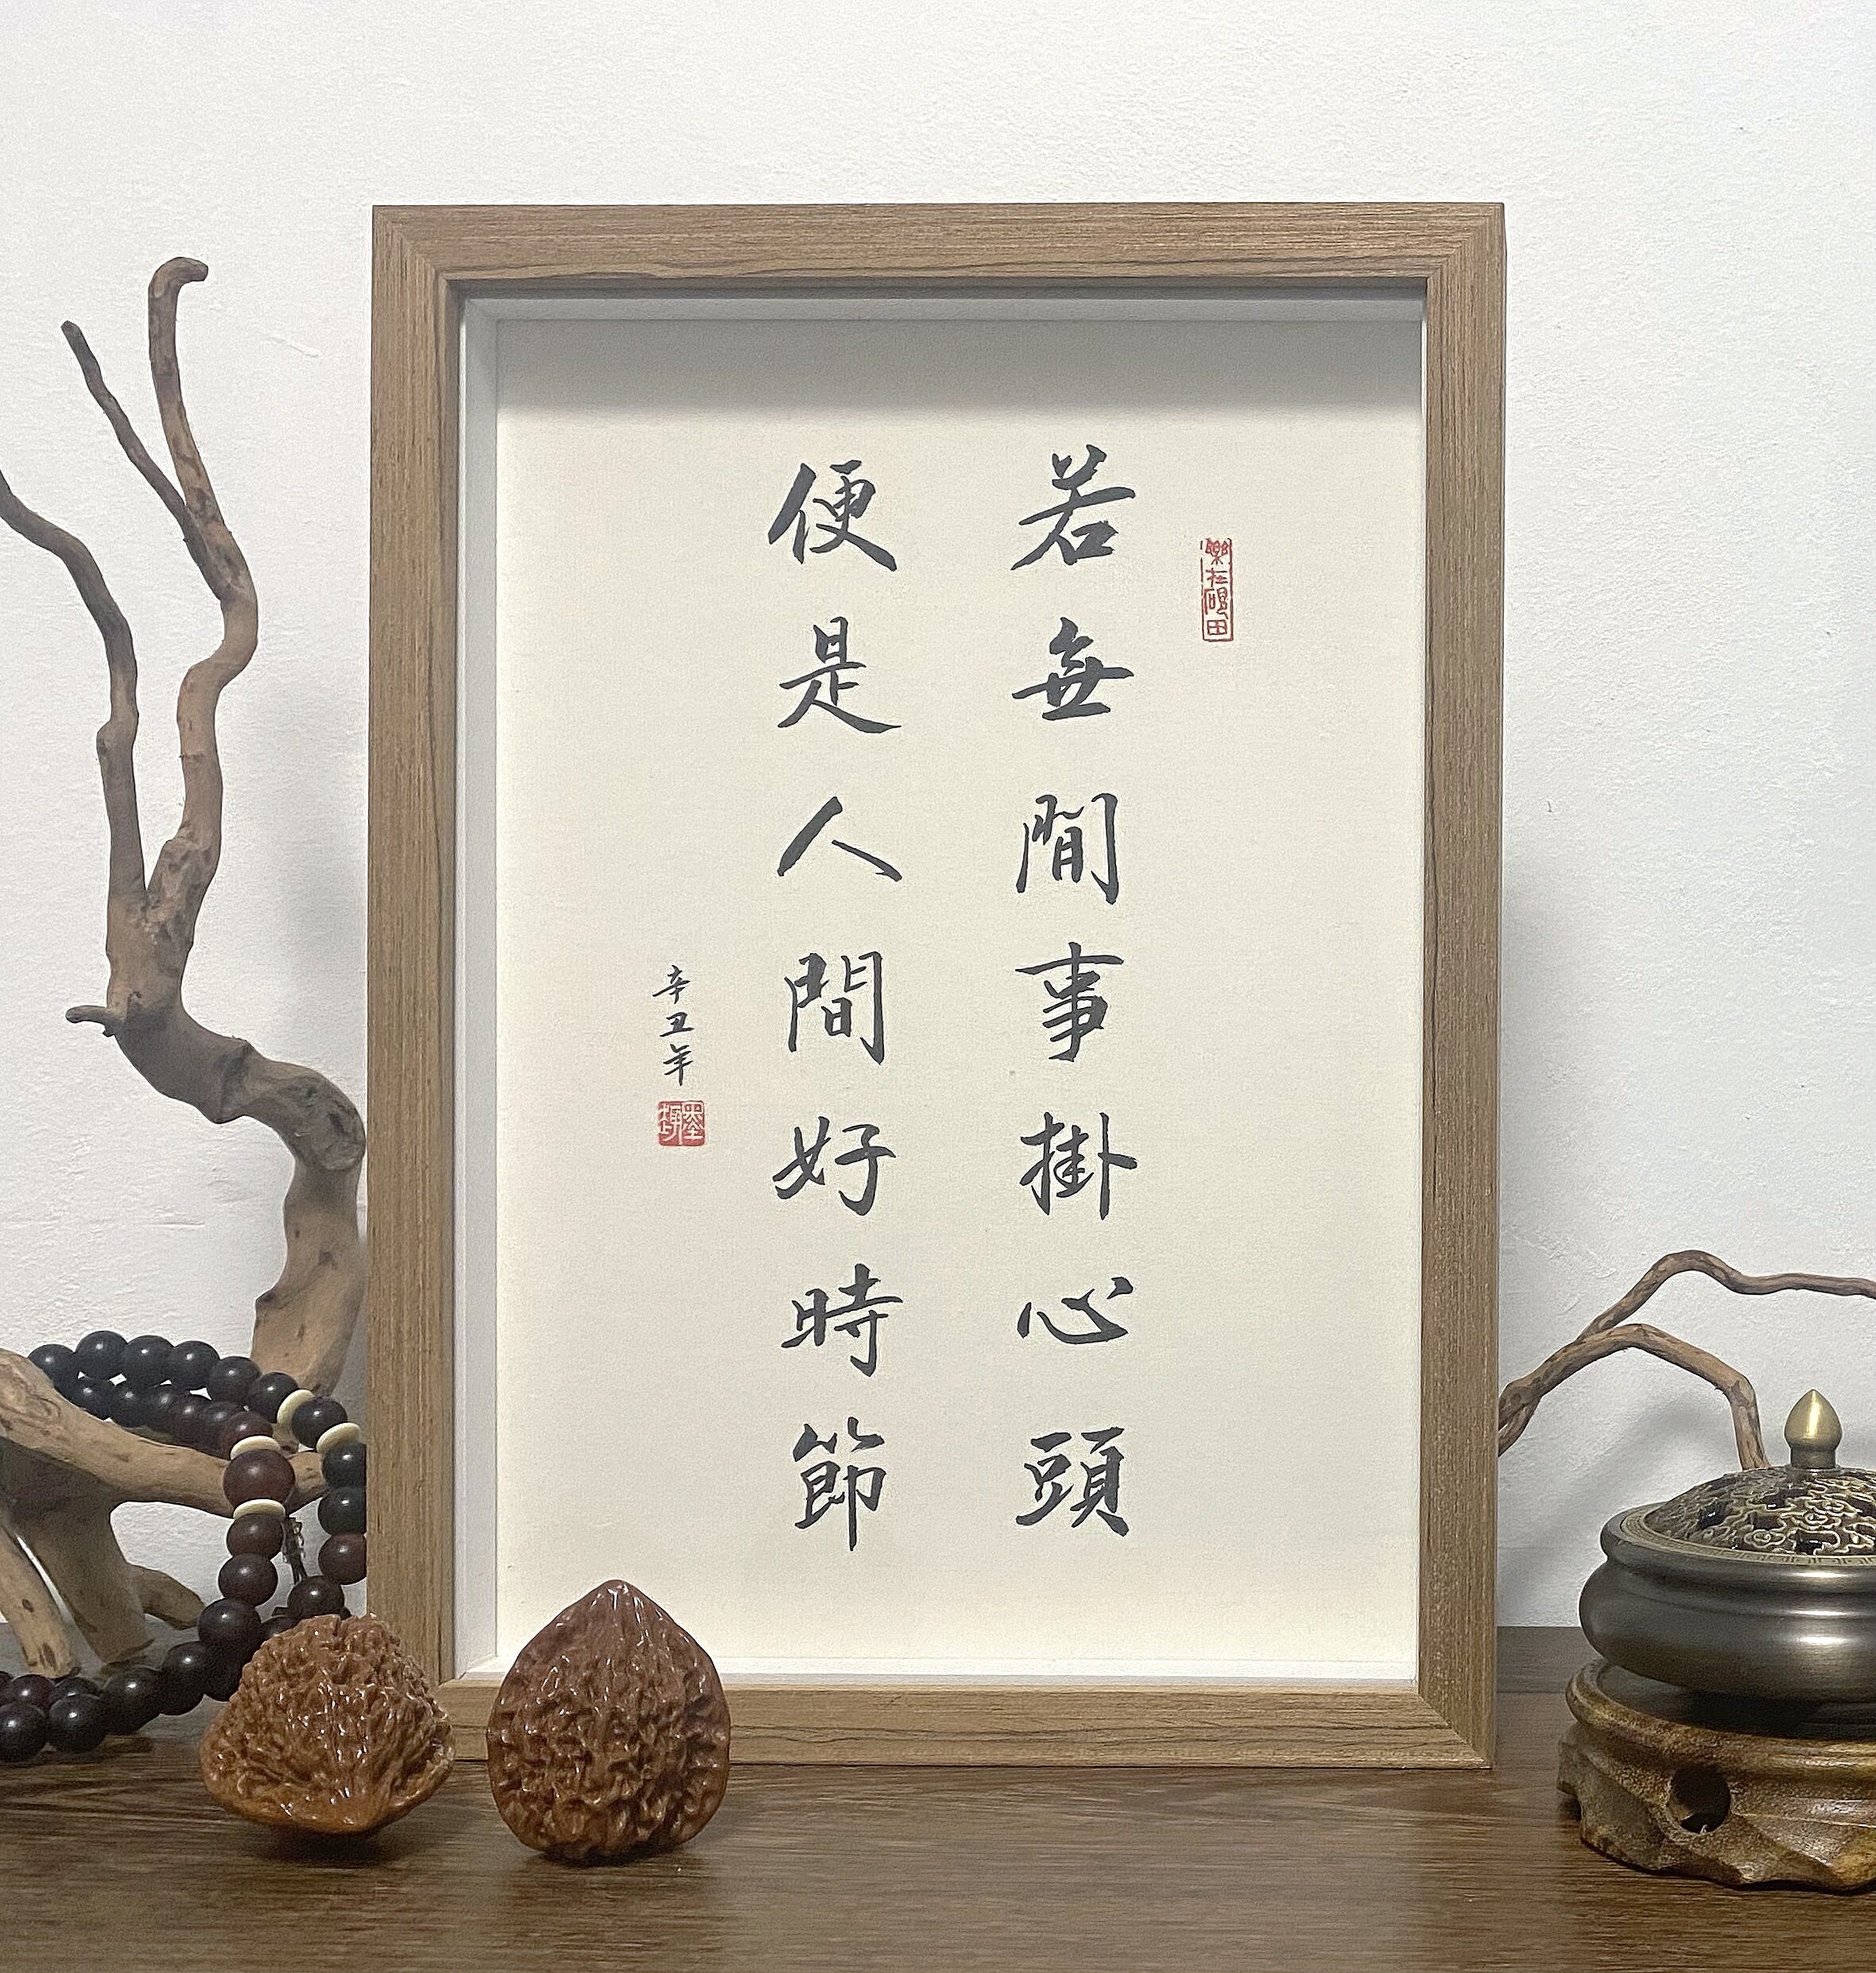 若無閒事掛心頭
便是人間好時節
辛丑年
樂在硯田